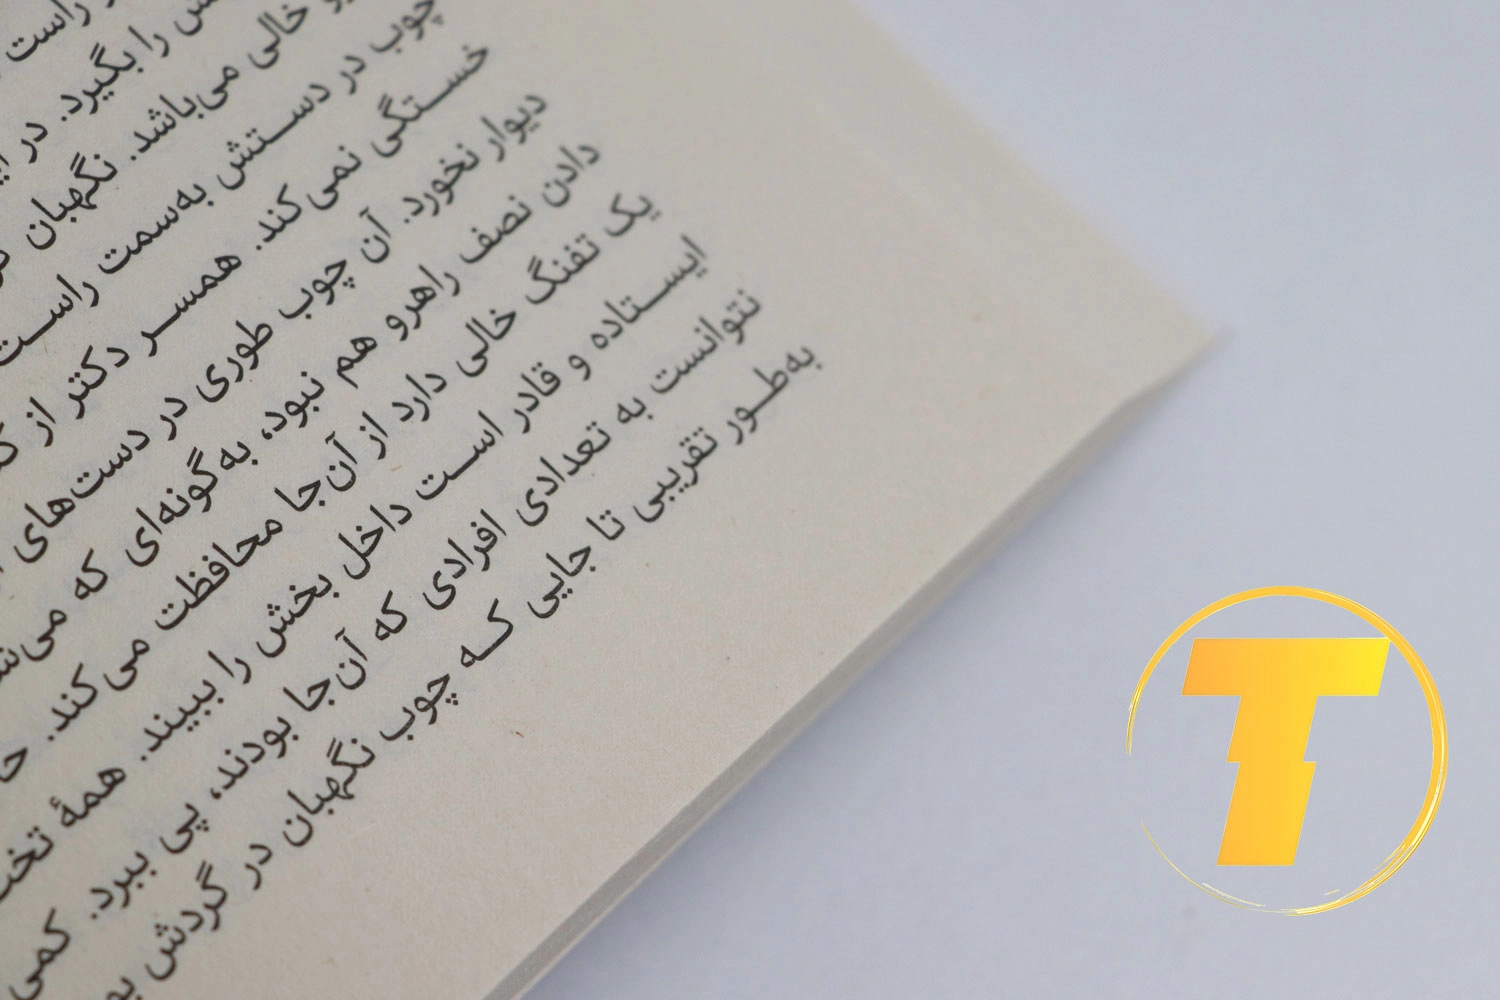 راست
را بگیرد. در
خالی می‌باشد. نگهبان
چوب در دستش به‌سمت راست
خستگی نمی‌کند. همسر دکتر از
دیوار نخورد. آن چوب طوری در دست‌های
دادن نصف راهرو هم نبود، به‌گونه‌ای که
یک تفنگ خالی دارد از آن‌جا محافظت می‌کند.
ایستاده و قادر است داخل بخش را ببیند. همهٔ
نتوانست به تعدادی افرادی که آن‌جا بودند، پی ببرد. کمی
به‌طور تقریبی تا جایی که چوب نگهبان در گردش
T